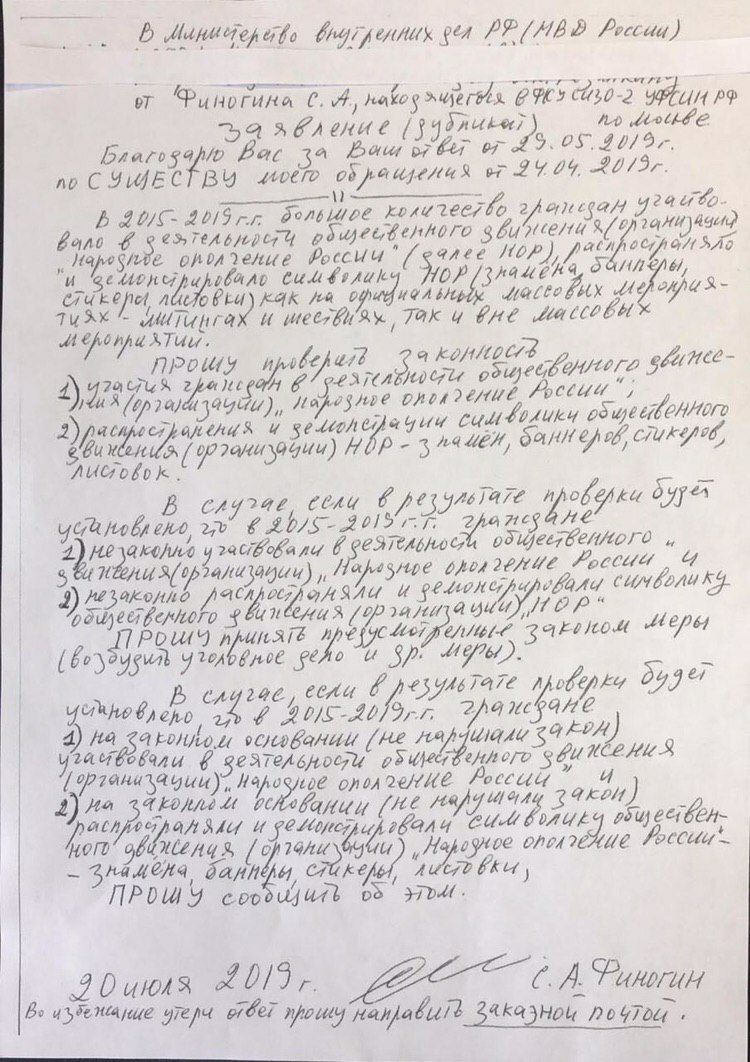 В Министерство внутренних дел РФ (МВД России)
от Финогина С.А., находящегося в ФКУ СИЗО-2 УФСИН РФ
заявление (дубликат) по москве
Благодарю Вас за Ваш ответ от 29.05.2019г.
по СУЩЕСТВУ моего обращения от 24.04.2019г.
В 2015-2019г.г. большое количество граждан участво-
вало в деятельности общественного движения (организации)
"Народное ополчение России" (далее НОР), распространяло
и демонстрировало символику НОР (знамёна, баннеры,
стикеры, листовки) как на официальных массовых мероприя-
тиях - митингах и шествиях, так и вне массовых
мероприятий.
ПРОШУ проверить законность
1) участия граждан в деятельности общественного движе-
ния (организации) „Народное ополчение России";
2) распространения и демонстрации символики общественного
движения (организации) НОР - знамён, баннеров, стикеров,
листовок.
В случае, если в результате проверки будет
установлено, что в 2015-2019г.г. граждане
1) незаконно участвовали в деятельности общественного
движения (организации) „Народное ополчение России" и
2) незаконно распространяли и демонстрировали символику
общественного движения (организации) „НОР"
ПРОШУ принять предусмотренные законом меры
(возбудить уголовное дело и др. меры).
В случае, если в результате проверки будет
установлено, что в 2015-2019г.г. граждане
1) на законном основании (не нарушали закон)
участвовали в деятельности общественного движения
(организации) „Народное ополчение России" и
2) на законном основании (не нарушали закон)
распространяли и демонстрировали символику обществен-
ного движения (организации) „Народное ополчение России"-
- знамёна, баннеры, стикеры, листовки,
ПРОШУ сообщить об этом.
20 июля 2019г. С.А. Финогин
Во избежание утери ответ прошу направить заказной почтой.